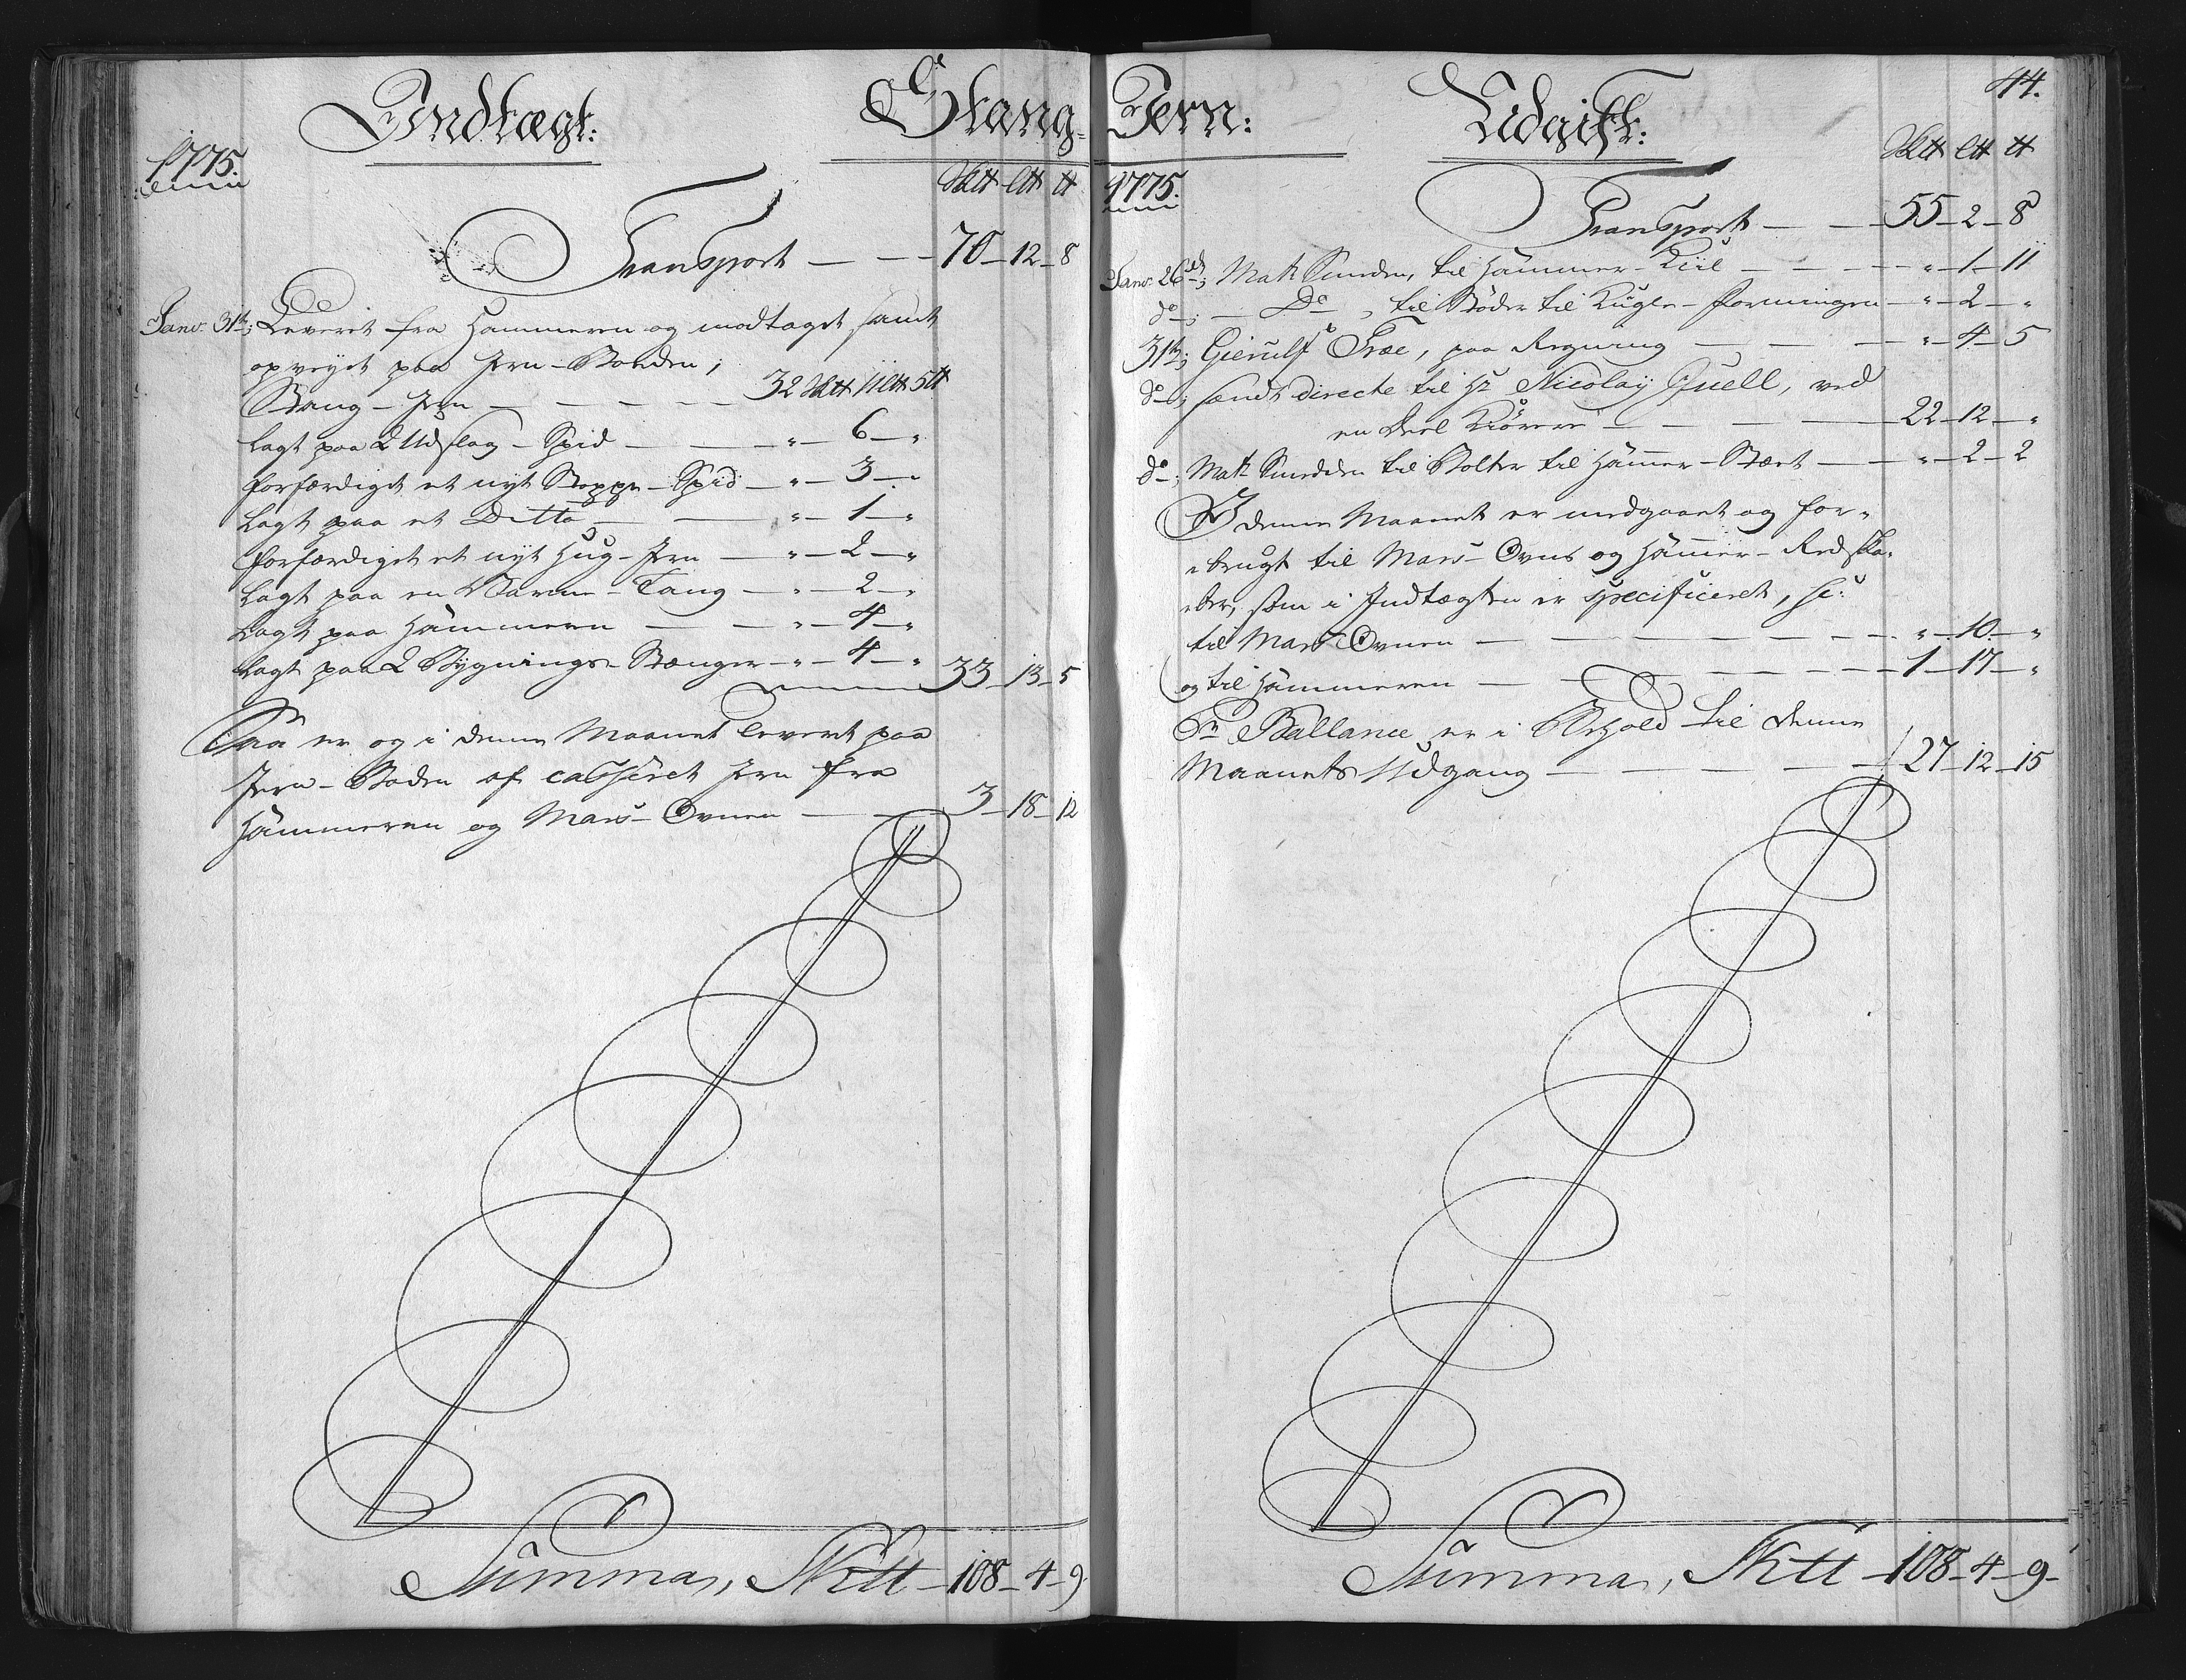 Indtægt:
Stang-
1775.
Sk℔ L℔ ℔
Transport — — — 70 — 12 — 8
Janv: 31te; Leveret fra Hammeren og modtaget samt
opveyet paa Jern-Boeden;
Stang-Jern — — — — — 32 Sk℔ 11 L℔ 5 ℔
Lagt paa 2 Udslag-Spid — — — " — 6 — "
Forfærdiget et nyt Stoppe-Spid — " — 3 — "
Lagt paa et Ditto — — — " — 1 — "
Forfærdiget et nyt Hug-Jern — " — 2 — "
Lagt paa en Varme-Tang — " — 2 — "
Lagt paa Hammeren — — " — 4 — "
Lagt paa 2 Bygnings-Stænger — " — 4 — " 33 — 13 — 5
Saa er og i denne Maanet leveret paa
Jern-Boden af casseret Jern fra
Hammeren og Mars-Ovnen — — 3 — 18 — 12
Summa, Sk℔ — 108 — 4 — 9
44.
Jern:
Udgift:
1775.
Sk℔ L℔ ℔
Transport — — — 55 — 2 — 8
Janv: 26de; Mats Smeden, til Hammer-Kiil — — — " — 1 — 11
do; — Do, til Bøder til Kugle-Formingen — " — 2 — "
31te; Gierulf Træe, paa Regning — — — " — 4 — 5
do; sendt directe til Hr Nicolay Quell, ved
en Deel Kiørere — — — — 22 — 12 — "
do; Mats Smeden til Bolter til Hammer-Stært — " — 2 — 2
I denne Maanet er medgaaet og for-
brugt til Mars-Ovns og Hammer-Redska-
ber, som i Indtægten er specificeret, sc:
til Mars Ovnen — — — — — " — 10 — "
og til Hammeren — — — — — 1 — 17 — "
Pr Ballance er i Behold til denne
Maanets Udgang — — — — 27 — 12 — 15
Summa, Sk℔ — 108 — 4 — 9 —